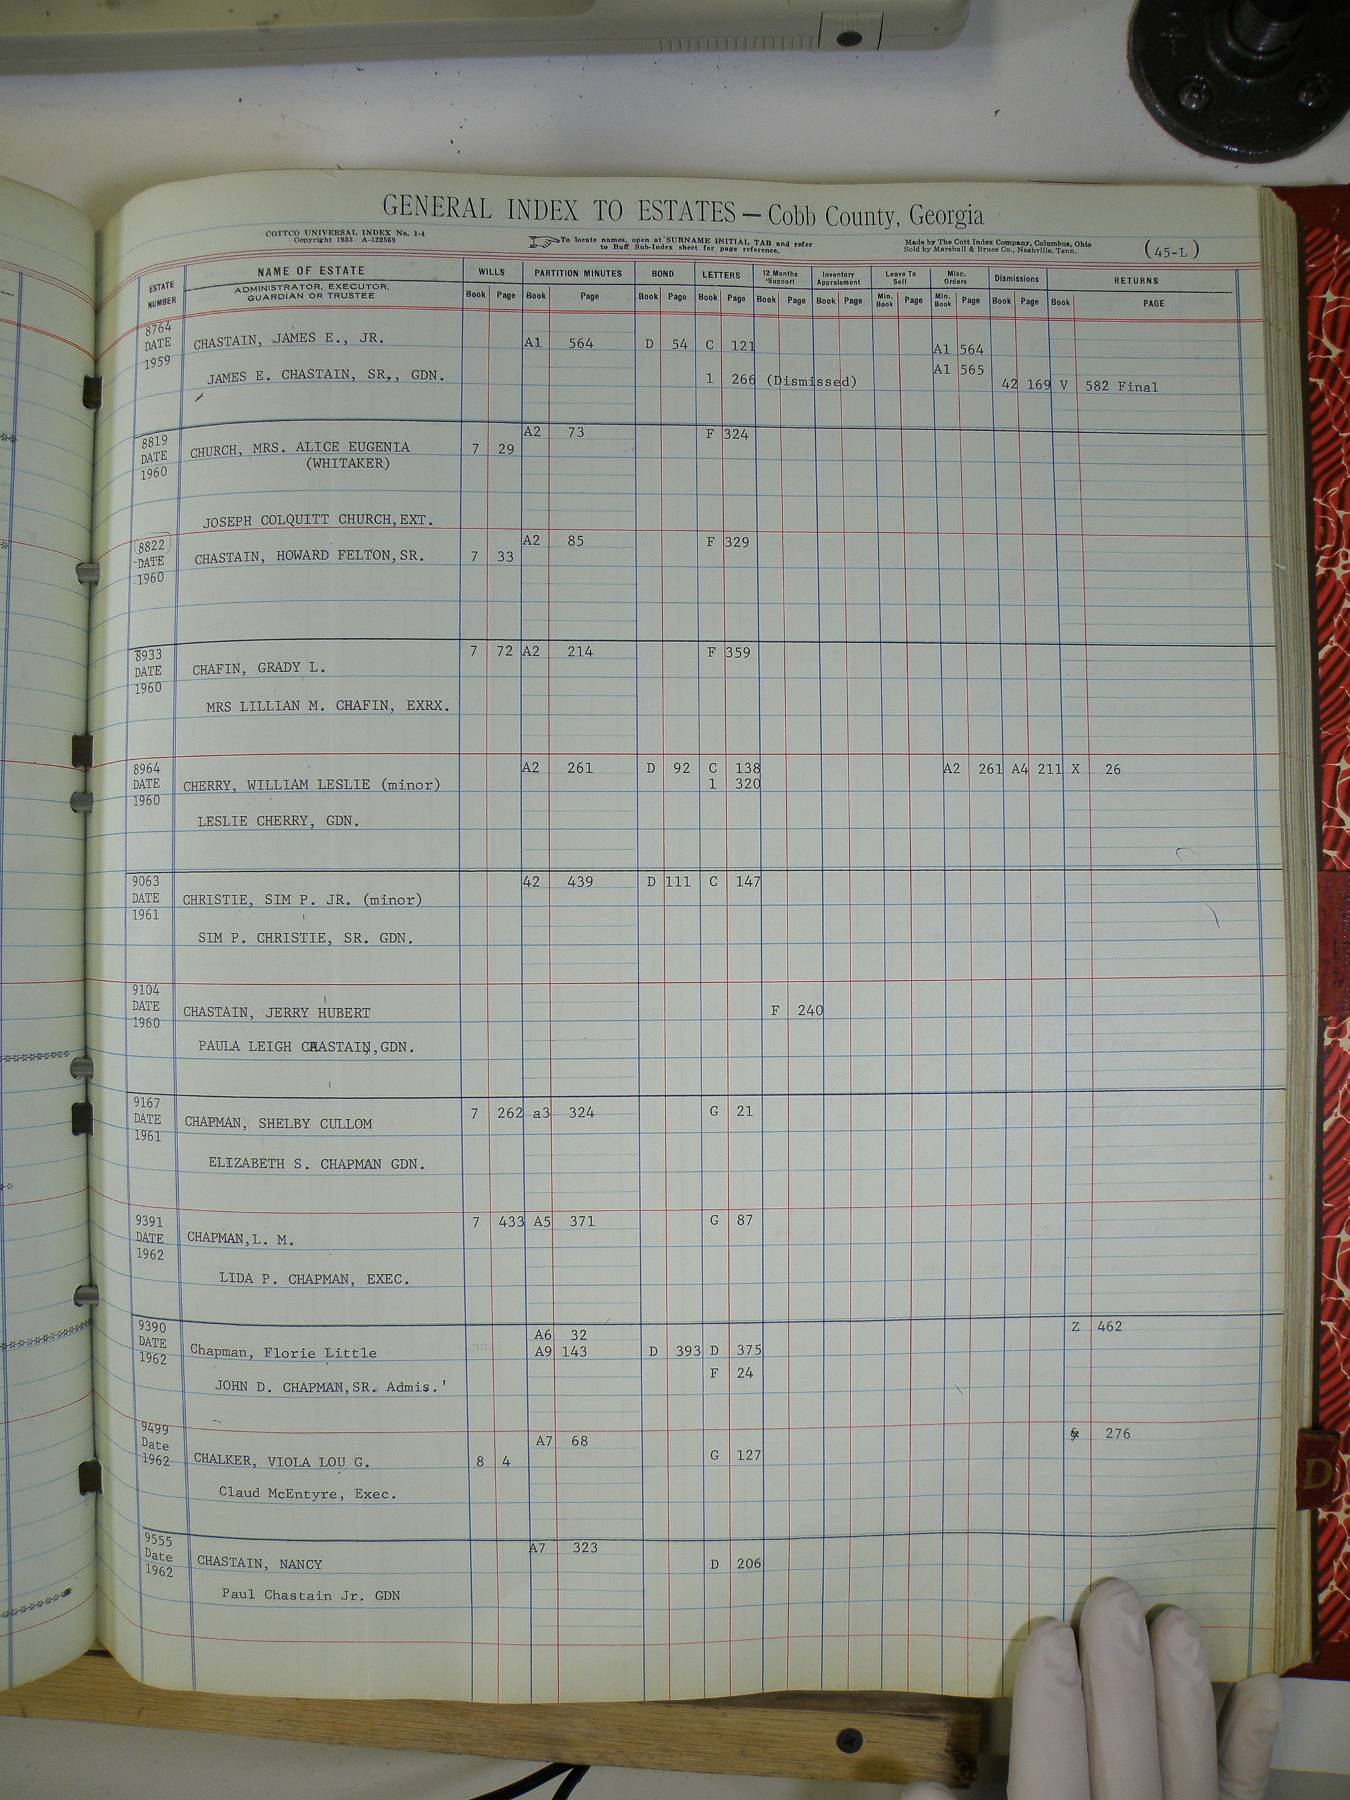 GENERAL INDEX TO ESTATES — Cobb County, Georgia
COTTCO UNIVERSAL INDEX No. 1-4
Copyright 1933 A-122569
To locate names, open at SURNAME INITIAL TAB and refer
to Buff Sub-Index sheet for page reference.
Made by The Cott Index Company, Columbus, Ohio
Sold by Marshall & Bruce Co., Nashville, Tenn.
(45-L)
ESTATE NUMBER NAME OF ESTATE WILLS PARTITION MINUTES BOND LETTERS 12 Months Support Inventory Appraisment Leave To Sell Misc. Orders Dismissions RETURNS
ADMINISTRATOR, EXECUTOR,
GUARDIAN OR TRUSTEE
Book Page Book Page Book Page Book Page Book Page Book Page Min. Book Page Min. Book Page Book Page Book PAGE
8764
DATE CHASTAIN, JAMES E., JR. A1 564 D 54 C 121 A1 564
1959 A1 565
JAMES E. CHASTAIN, SR,, GDN. 1 266 (Dismissed) 42 169 V 582 Final
8819 A2 73 F 324
DATE CHURCH, MRS. ALICE EUGENIA 7 29
1960 (WHITAKER)
JOSEPH COLQUITT CHURCH,EXT.
8822 A2 85 F 329
DATE CHASTAIN, HOWARD FELTON,SR. 7 33
1960
8933 7 72 A2 214 F 359
DATE CHAFIN, GRADY L.
1960
MRS LILLIAN M. CHAFIN, EXRX.
8964 A2 261 D 92 C 138 A2 261 A4 211 X 26
DATE CHERRY, WILLIAM LESLIE (minor) 1 320
1960
LESLIE CHERRY, GDN.
9063 42 439 D 111 C 147
DATE CHRISTIE, SIM P. JR. (minor)
1961
SIM P. CHRISTIE, SR. GDN.
9104
DATE CHASTAIN, JERRY HUBERT F 240
1960
PAULA LEIGH CHASTAIN,GDN.
9167 7 262 a3 324 G 21
DATE CHAPMAN, SHELBY CULLOM
1961
ELIZABETH S. CHAPMAN GDN.
9391 7 433 A5 371 G 87
DATE CHAPMAN,L. M.
1962
LIDA P. CHAPMAN, EXEC.
9390 A6 32 Z 462
DATE Chapman, Florie Little A9 143 D 393 D 375
1962 F 24
JOHN D. CHAPMAN,SR. Admis.'
9499 A7 68 276
Date CHALKER, VIOLA LOU G. 8 4 G 127
1962
Claud McEntyre, Exec.
9555 A7 323
Date CHASTAIN, NANCY D 206
1962
Paul Chastain Jr. GDN
D